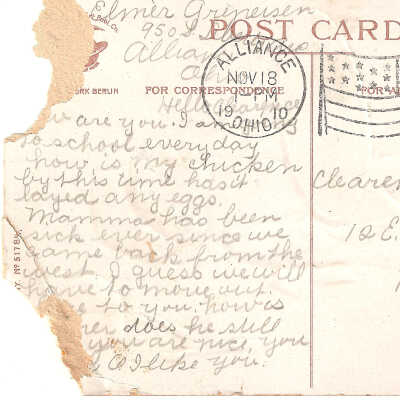 Elmer Greneisen
950 S
POST CARD
Alliance
Ohio
ALLIANCE
NOV 18
M
1910
OHIO
YORK BERLIN
FOR CORRESPONDENCE
FOR
Hello
are you. I am
to school everyday
how is my chicken
by this time has it
layed any eggs.
Mamma has been
sick ever since we
came back from the
west. I guess we will
have to move out
to you. how is
does he still
you are nice, you
I like you.
Claren
12 E.
Nº 5178